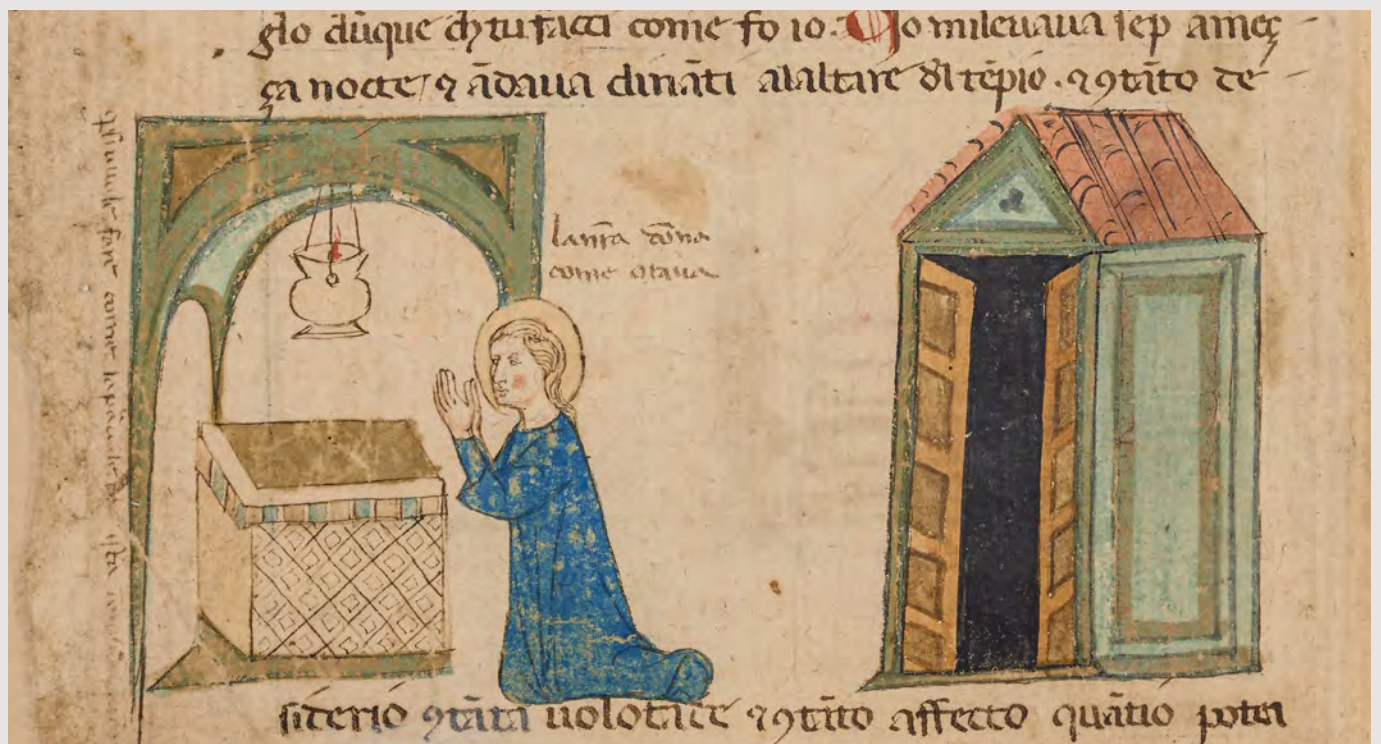 glo dūque ch̄ tu facci come fo io. Io mileuaua sēp ameç
ça nocte / ⁊ ādaua dināti alaltare dl tēpio. ⁊ ꝯtāto de
come
la nr̄a dōna
come
siderio ꝯtāta uolōtate ⁊ ꝯtāto affecto quātio potea